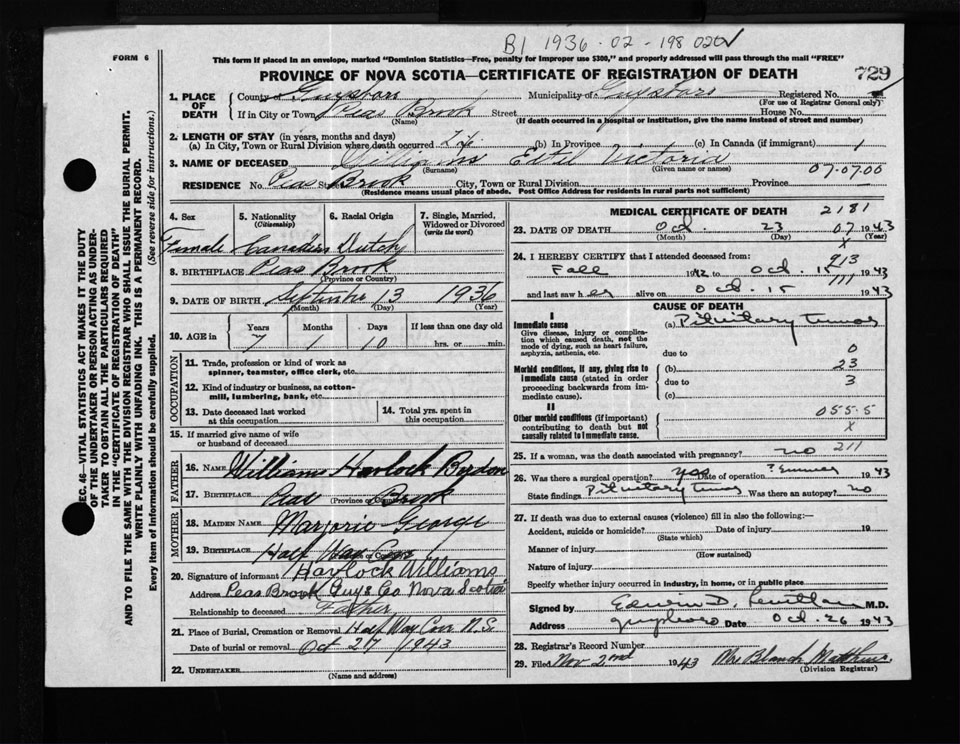 B1 1936-02-198020✓
FORM 6
This form if placed in an envelope, marked "Dominion Statistics—Free, penalty for improper use $300," and properly addressed will pass through the mail "FREE"
PROVINCE OF NOVA SCOTIA—CERTIFICATE OF REGISTRATION OF DEATH 729
SEC. 46—VITAL STATISTICS ACT MAKES IT THE DUTY
OF THE UNDERTAKER OR PERSON ACTING AS UNDER-
TAKER TO OBTAIN ALL THE PARTICULARS REQUIRED
IN THE "CERTIFICATE OF REGISTRATION OF DEATH"
AND TO FILE THE SAME WITH THE DIVISION REGISTRAR WHO SHALL ISSUE THE BURIAL PERMIT.
WRITE PLAINLY WITH UNFADING INK. THIS IS A PERMANENT RECORD.
Every item of information should be carefully supplied. (See reverse side for instructions.)
1. PLACE OF DEATH
County of Municipality of Registered No.
(For use of Registrar General only)
If in City or Town Peas Brook Street House No.
(Name) (If death occurred in a hospital or institution, give the name instead of street and number)
2. LENGTH OF STAY (in years, months and days)
(a) In City, Town or Rural Division where death occurred (b) In Province (c) In Canada (if immigrant)
3. NAME OF DECEASED Ethel Victoria
(Surname) (Given name or names) 07.07.00
RESIDENCE No. Peas Street Brook City, Town or Rural Division Province
(Residence means usual place of abode. Post Office Address for residents in rural parts not sufficient)
4. Sex 5. Nationality 6. Racial Origin 7. Single, Married,
(Citizenship) Widowed or Divorced
(write the word)
Female Canadian Dutch
8. BIRTHPLACE Peas Brook
(Province or Country)
9. DATE OF BIRTH September 13 1936
(Month) (Day) (Year)
10. AGE in Years Months Days If less than one day old
7 1 10 hrs. or min.
OCCUPATION
11. Trade, profession or kind of work as
spinner, teamster, office clerk, etc.
12. Kind of industry or business, as cotton-
mill, lumbering, bank, etc.
13. Date deceased last worked 14. Total yrs. spent in
at this occupation this occupation
15. If married give name of wife
or husband of deceased
FATHER
16. NAME Williams Havlock Burdon
17. BIRTHPLACE Peas Brook
(Province or Country)
MOTHER
18. MAIDEN NAME Marjorie George
19. BIRTHPLACE Half Way Cove
20. Signature of informant Havlock Williams
Address Peas Brook Guys Co Nova Scotia
Relationship to deceased Father
21. Place of Burial, Cremation or Removal Half Way Cove N.S.
Date of burial or removal Oct 27 1943
22. UNDERTAKER
(Name and address)
MEDICAL CERTIFICATE OF DEATH 2181
23. DATE OF DEATH Oct. 23 07 1943
(Month) (Day) X (Year)
24. I HEREBY CERTIFY that I attended deceased from: 913
Fall 1942 to Oct. 15 1943
777
and last saw her alive on Oct. 15 1943
CAUSE OF DEATH
I
Immediate cause (a) Pituitary tumor
Give disease, injury or complica-
tion which caused death, not the
mode of dying, such as heart failure,
asphyxia, asthenia, etc. due to 0
Morbid conditions, if any, giving rise to (b) 23
immediate cause (stated in order due to 3
proceeding backwards from im-
mediate cause). (c)
II
Other morbid conditions (if important) 055.5
contributing to death but not X
causally related to immediate cause.
25. If a woman, was the death associated with pregnancy? no 211
26. Was there a surgical operation? yes Date of operation ? Summer 1943
State findings Pituitary tumor Was there an autopsy? no
27. If death was due to external causes (violence) fill in also the following:—
Accident, suicide or homicide? Date of injury 19
(State which)
Manner of injury
(How sustained)
Nature of injury
Specify whether injury occurred in industry, in home, or in public place
Signed by Edwin D. M.D.
Address Guysboro Date Oct. 26 1943
28. Registrar's Record Number
29. Filed Nov 2nd 1943 Mrs Blanch Matthews
(Division Registrar)